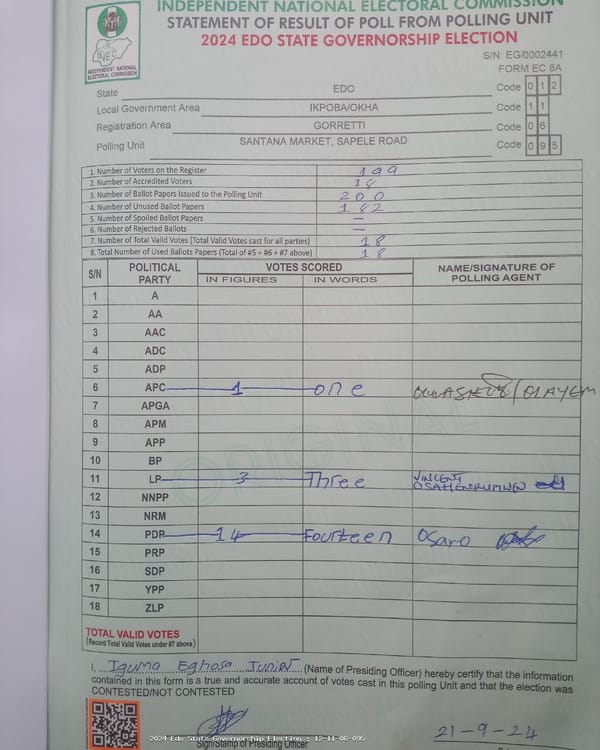 INDEPENDENT NATIONAL ELECTORAL COMMISSION
STATEMENT OF RESULT OF POLL FROM POLLING UNIT
2024 EDO STATE GOVERNORSHIP ELECTION
INEC
INDEPENDENT NATIONAL
ELECTORAL COMMISSION
S/N: EG/0002441
FORM EC 8A
State EDO Code 0 1 2
Local Government Area IKPOBA/OKHA Code 1 1
Registration Area GORRETTI Code 0 6
Polling Unit SANTANA MARKET, SAPELE ROAD Code 0 9 5
1. Number of Voters on the Register 199
2. Number of Accredited Voters 18
3. Number of Ballot Papers Issued to the Polling Unit 200
4. Number of Unused Ballot Papers 182
5. Number of Spoiled Ballot Papers —
6. Number of Rejected Ballots —
7. Number of Total Valid Votes (Total Valid Votes cast for all parties) 18
8. Total Number of Used Ballots Papers (Total of #5 + #6 + #7 above) 18
S/N POLITICAL PARTY VOTES SCORED NAME/SIGNATURE OF POLLING AGENT
IN FIGURES IN WORDS
1 A
2 AA
3 AAC
4 ADC
5 ADP
6 APC 1 one
7 APGA
8 APM
9 APP
10 BP
11 LP 3 Three VINCENT
12 NNPP
13 NRM
14 PDP 14 Fourteen Osaro
15 PRP
16 SDP
17 YPP
18 ZLP
ORIGINAL
TOTAL VALID VOTES
(Record Total Valid Votes under #7 above)
I, Iguma Eghosa Junior (Name of Presiding Officer) hereby certify that the information
contained in this form is a true and accurate account of votes cast in this polling Unit and that the election was
CONTESTED/NOT CONTESTED
2024 Edo State Governorship Election : 12-11-06-095
Sign/Stamp of Presiding Officer
21-9-24